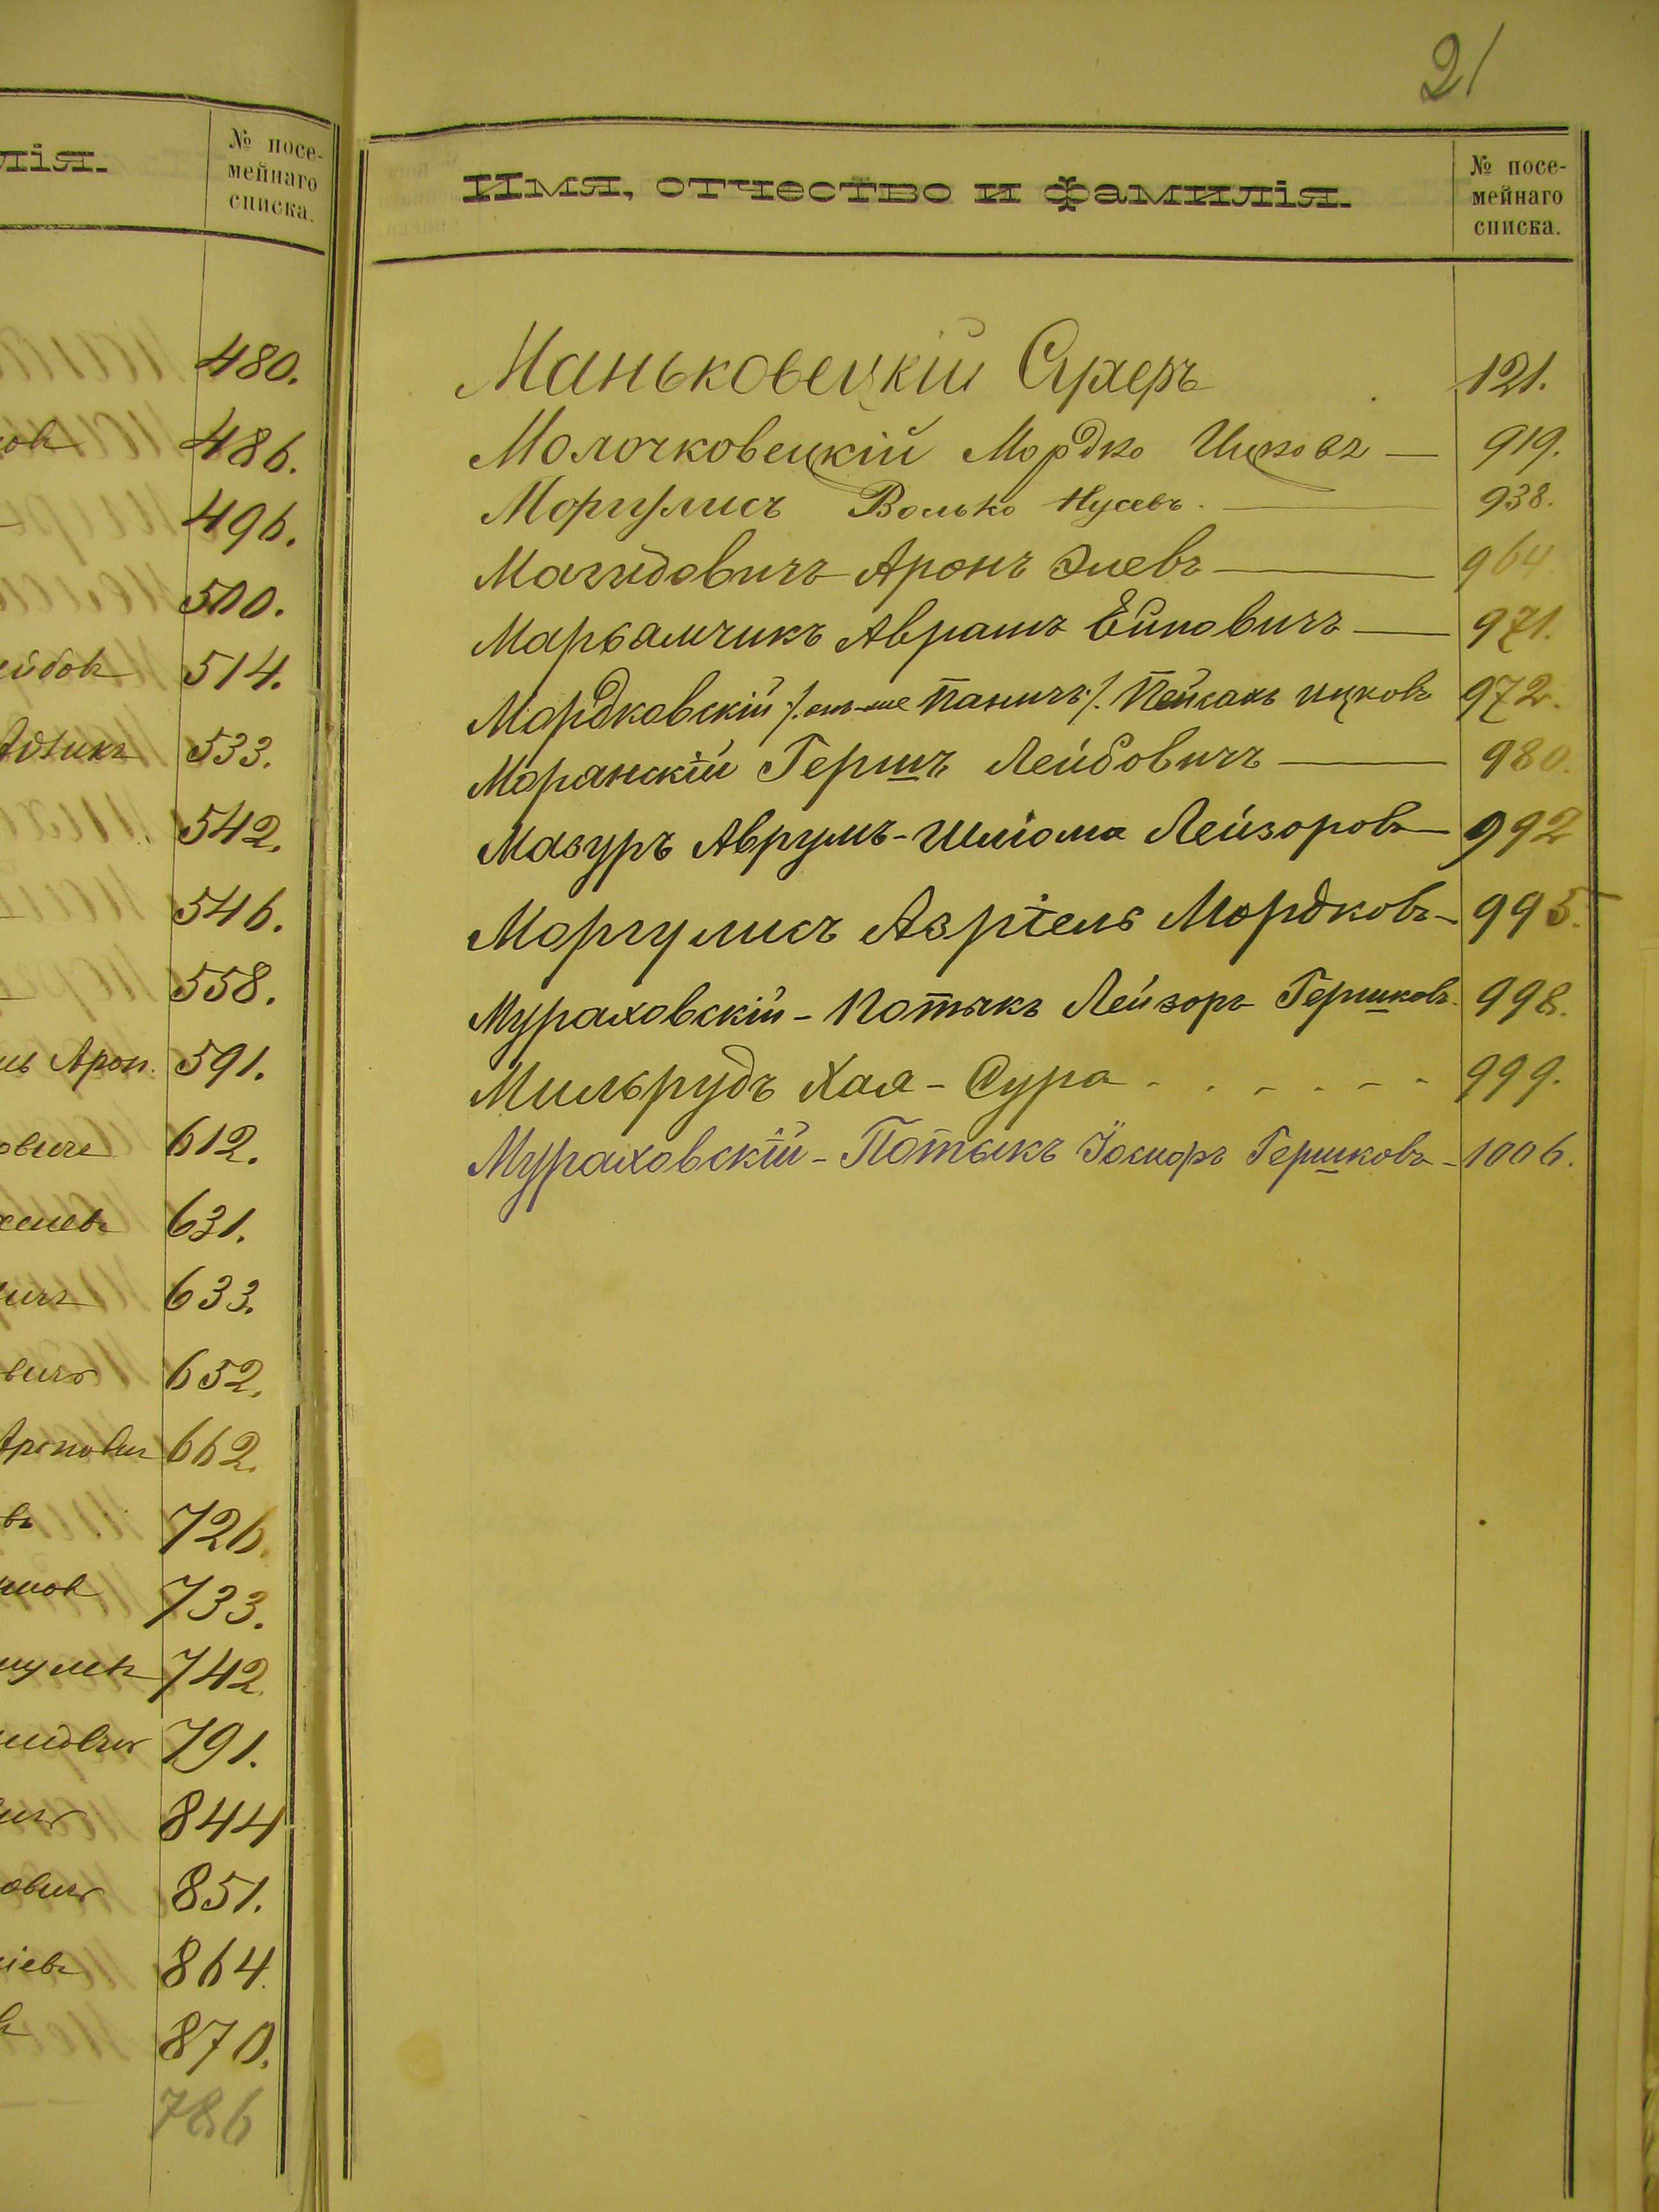 лія.
№ посе-
мейнаго
списка.
480.
486.
496.
500.
514.
533.
542.
546.
558.
Арон. 591.
612.
631.
633.
652.
662.
726.
733.
742.
791.
844
851.
864.
870.
786
21
Имя, отчество и фамилія.
№ посе-
мейнаго
списка.
Маньковецкій Сухеръ 121.
Молочковецкій Мордко Ицковъ — 919.
Моргулисъ Волько Нусевъ. — 938.
Магидовичъ Аронъ Элевъ — 964
Марьямчикъ Аврамъ — 971.
Мордковскій /. Паничъ ./. Пейсахъ Ицковъ 972.
Моранскій Гершъ Лейбовичъ — 980.
Мазуръ Аврумъ-Шліома Лейзоровъ — 992
Моргулисъ Азріель Мордковъ — 995.
Мураховскій - Потыкъ Лейзоръ Гершковъ. 998.
Мильрудъ Хая - Сура - . - . - - 999.
Мураховскій - Потыкъ Іосифъ Гершковъ - 1006.